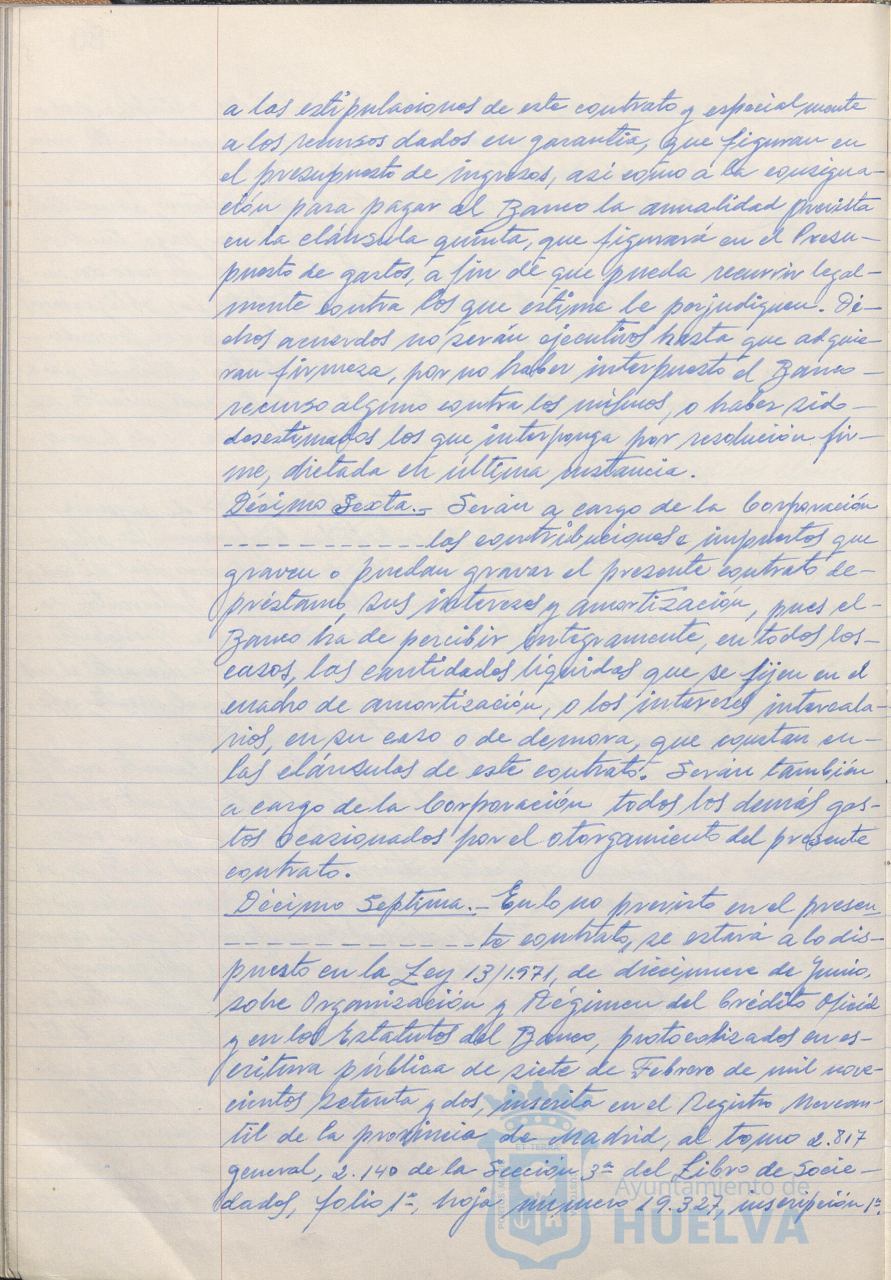 a las estipulaciones de este contrato y especialmente
a los recursos dados en garantía, que figuran en
el presupuesto de ingresos, así como a la consigna-
ción para pagar al Banco la anualidad prevista
en la cláusula quinta, que figurará en el Presu-
puesto de gastos, a fin de que pueda recurrir legal-
mente contra los que estime le perjudiquen. Di-
chos acuerdos no serán ejecutivos hasta que adquie-
ran firmeza, por no haber interpuesto el Banco -
recurso alguno contra los mismos, o haber sido -
desestimados los que interponga por resolución fir-
me, dictada en última instancia.
Décimo Sexta.- Serán a cargo de la Corporación
- - - - - - - - - - - - las contribuciones e impuestos que
graven o puedan gravar el presente contrato de -
préstamo, sus intereses y amortización, pues el -
Banco ha de percibir íntegramente, en todos los -
casos, las cantidades líquidas que se fijen en el
cuadro de amortización, o los intereses intercala-
rios, en su caso o de demora, que constan en -
las cláusulas de este contrato. Serán también
a cargo de la Corporación todos los demás gas-
tos ocasionados por el otorgamiento del presente
contrato.
Décimo Septima.- En lo no previsto en el presen-
- - - - - - - - - - - - - - te contrato, se estará a lo dis-
puesto en la Ley 13/1.971, de diecinueve de Junio,
sobre Organización y Régimen del Crédito Oficial
y en los Estatutos del Banco, protocolizados en es-
critura pública de siete de Febrero de mil nove-
cientos setenta y dos, inscrita en el Registro Mercan-
til de la provincia de Madrid, al tomo 2.817
general, 2.140 de la Sección 3ª del Libro de Socie-
dades, folio 1º, hoja número 19.327, inscripción 1ª.
Ayuntamiento de
HUELVA